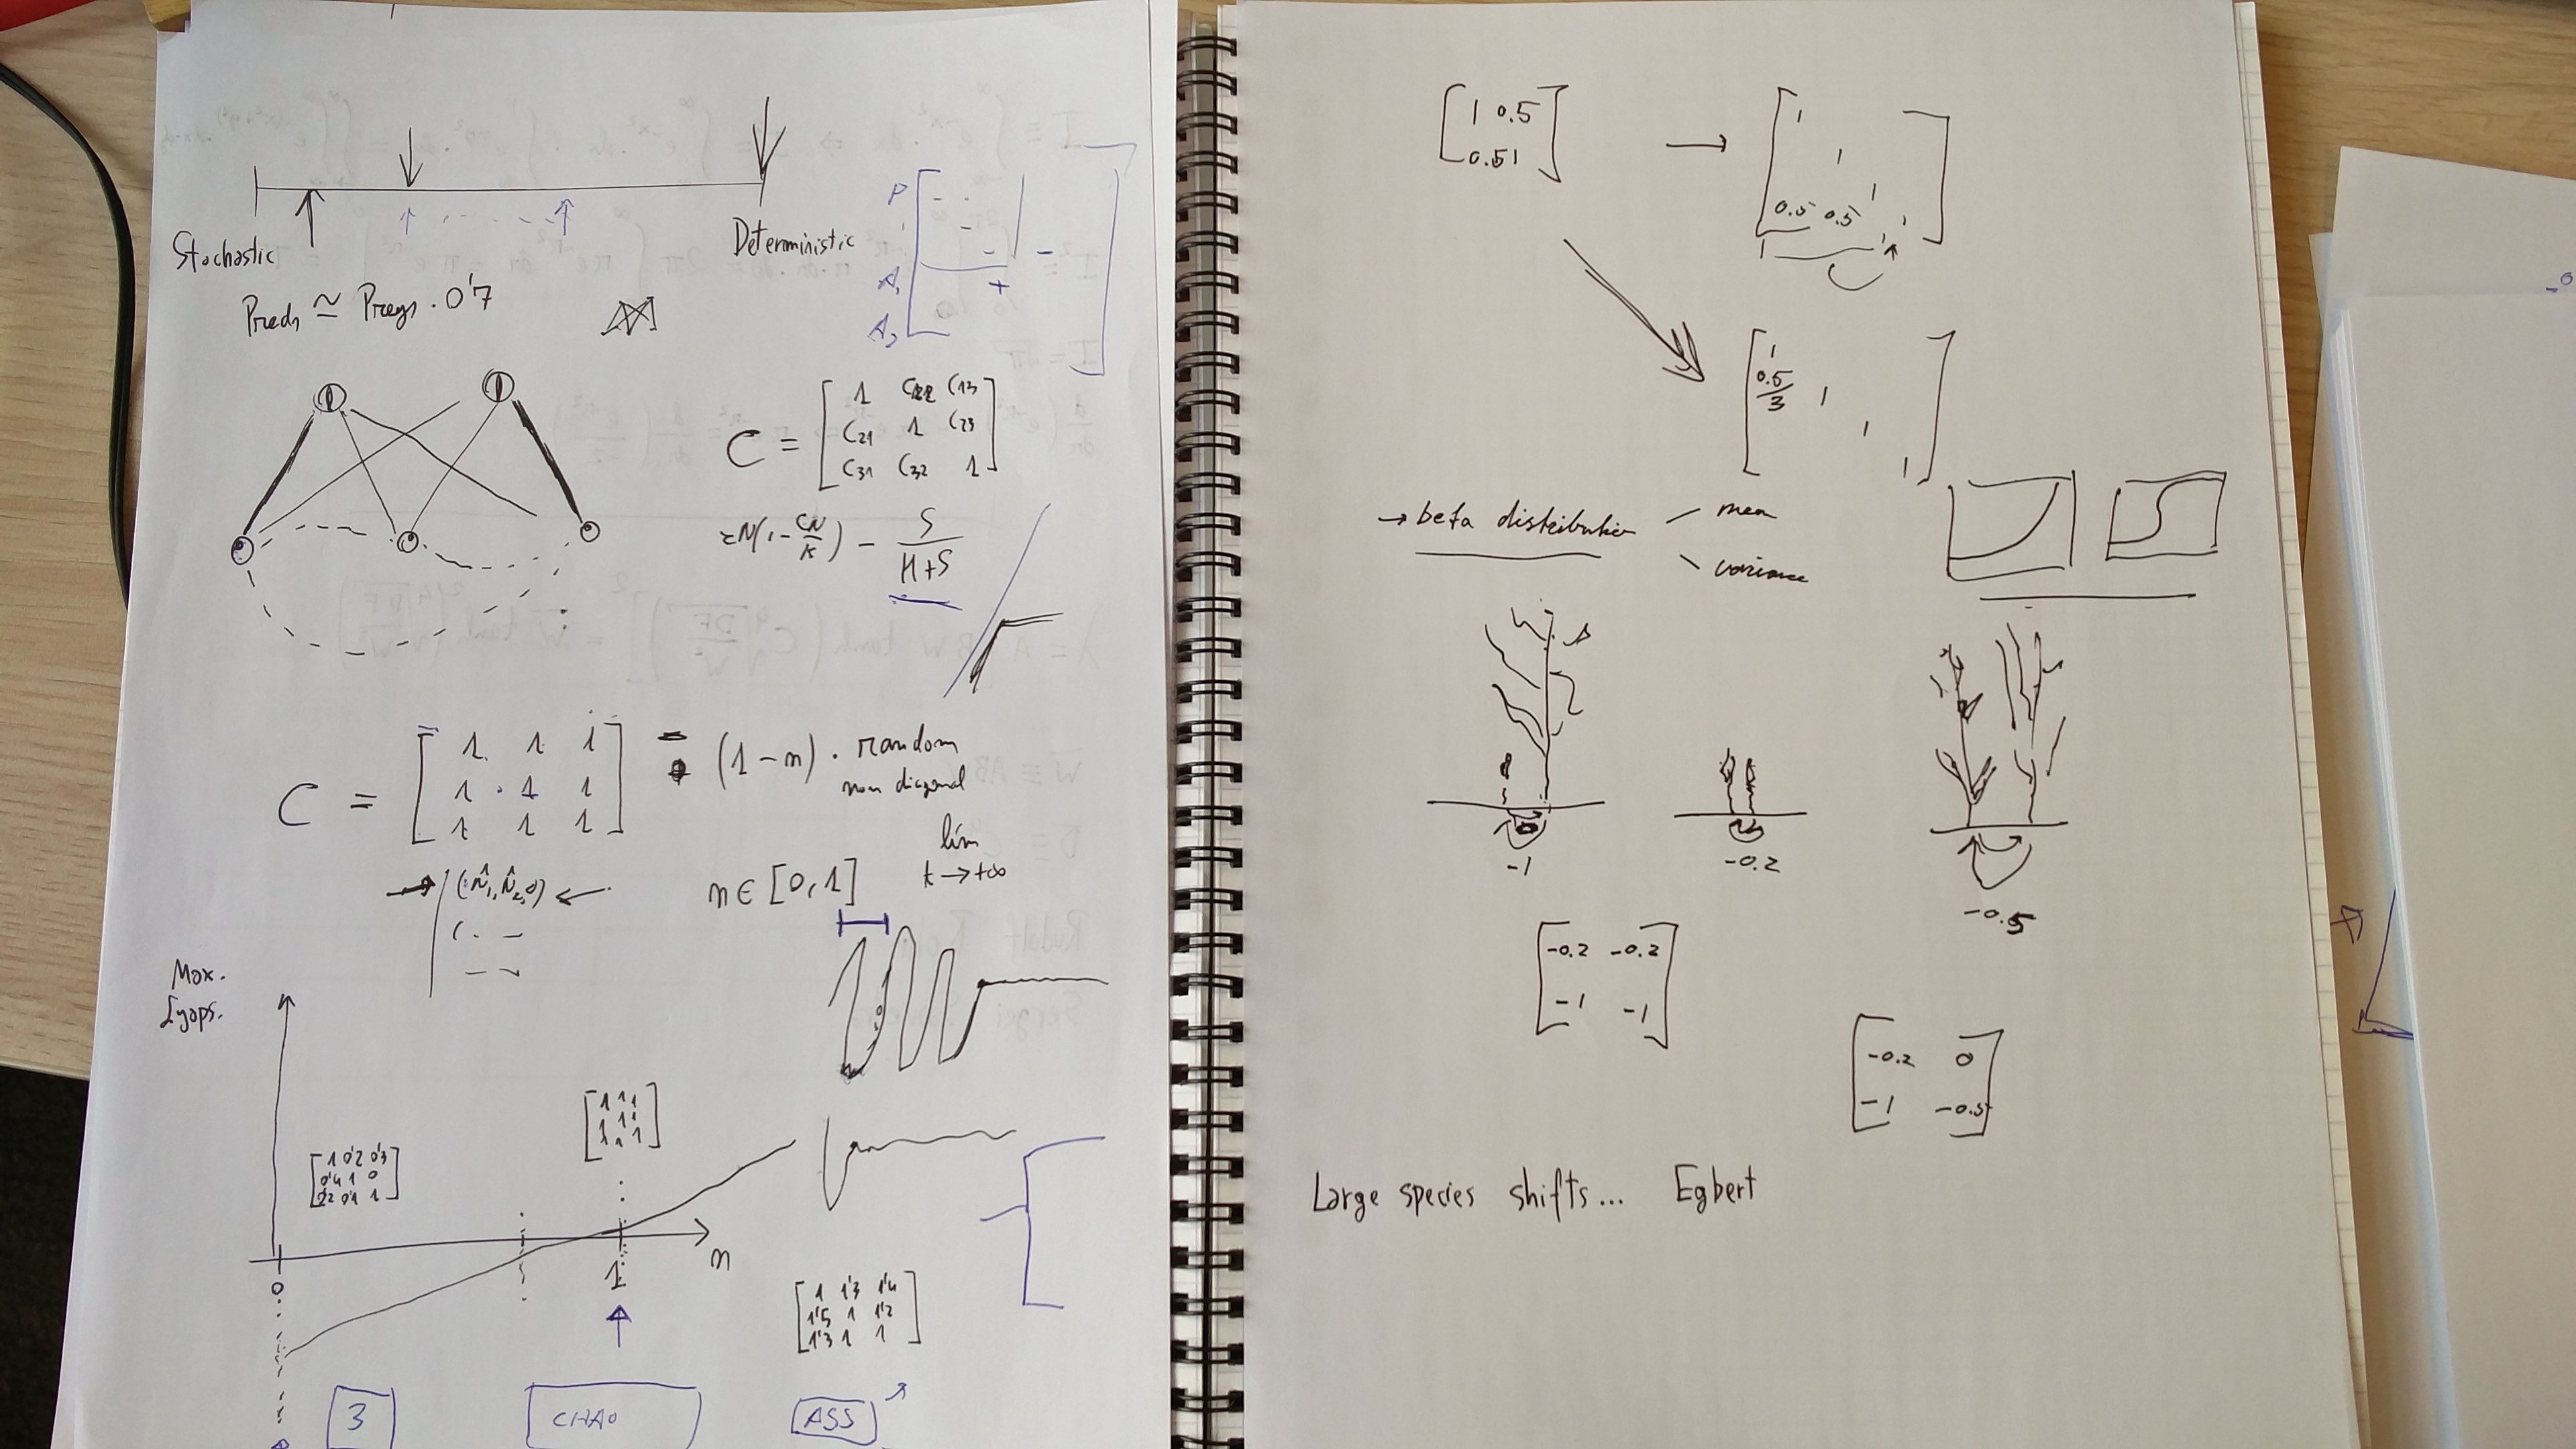 Stochastic
Deterministic
Preds ≃ Preys · 0'7
P
A,
C = [ 1 C12 C13
C21 1 C23
C31 C32 1 ]
rN(1 - CN/K) - S/(H+S)
C = [ 1 1 1
1 · 1 1
1 1 1 ]
(1 - n) · random
non diagonal
(N̂1, N̂2, 0)
n ∈ [0,1]
lim
t → +∞
Max.
Lyaps.
[ 1 0'2 0'3
0'4 1 0
0'2 0'1 1 ]
[ 1 1 1
1 1 1
1 1 1 ]
n
0
1
[ 1 1'3 1'4
1'5 1 1'2
1'3 1 1 ]
3
CHAO
ASS
[ 1 0.5
0.5 1 ]
→
[ 1
1
1
0.5 0.5 1 ]
[ 1
0.5/3 1
1
1 ]
→ beta distribution
mean
variance
-1
-0.2
-0.5
[ -0.2 -0.2
-1 -1 ]
[ -0.2 0
-1 -0.5 ]
Large species shifts... Egbert